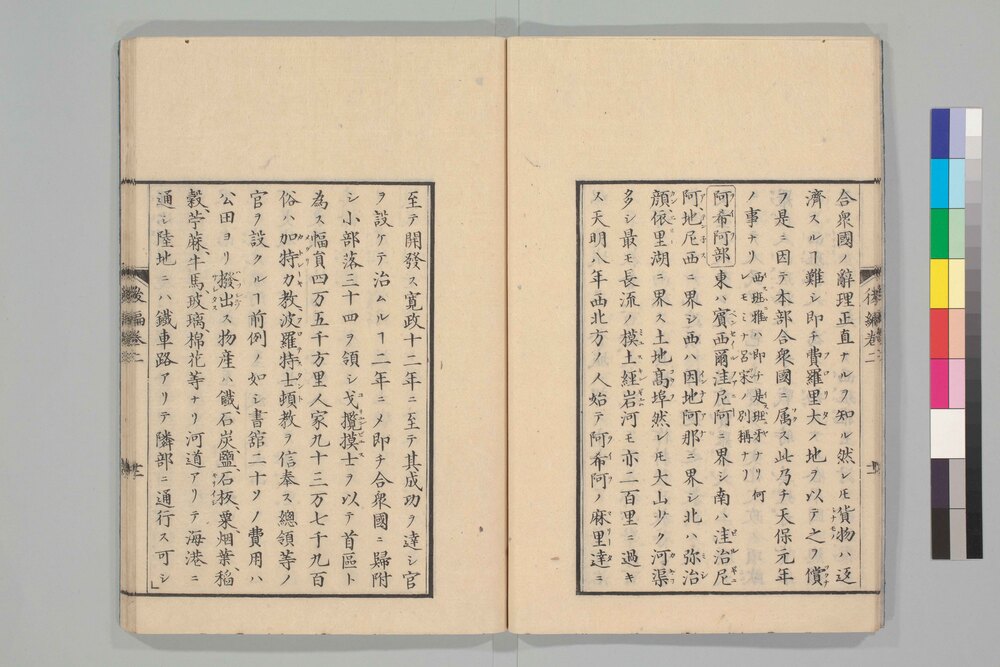 合衆國ノ辭理正直ナルヲ知ル然レモ貨物ハ返
濟スルヿ難シ即チ費羅里大ノ地ヲ以テ之ヲ償
フ是ニ因テ本部合衆國ニ属ス此乃チ天保元年
ノ事ナリ西班雅ハ即チ是班牙ナリ何
レモミナ呂宋ノ別稱ナリ
阿希阿部東ハ賓西爾洼尼阿ニ界シ南ハ洼治尼
阿地尼西ニ界シ西ハ因地阿那ニ界シ北ハ弥治
顔依里湖ニ界ス土地髙埠然レモ大山少ク河渠
多シ最モ長流ノ模土經岩河モ亦二百里ニ過キ
ス天明八年西北方ノ人始テ阿希阿ノ麻里達ニ
後編卷二
至テ開發ス寛政十二年ニ至テ其成功ヲ達シ官
ヲ設ケテ治ムルヿ二年ニメ即チ合衆國ニ歸附
シ小部落三十四ヲ領シ戈攬摸士ヲ以テ首區ト
為ス幅員四万五千方里人家九十三万七千九百
俗ハ加特力教波羅特士頓教ヲ信奉ス總領等ノ
官ヲ設クルヿ前例ノ如シ書舘二十ヲノ費用ハ
公田ヨリ撥出ス物産ハ鐵石炭鹽石板粟烟葉稻
穀苧蔴牛馬玻璃棉花等ナリ河道アリテ海港ニ
通シ陸地ニハ鐵車路アリテ隣部ニ通行ス可シ」
後編卷二